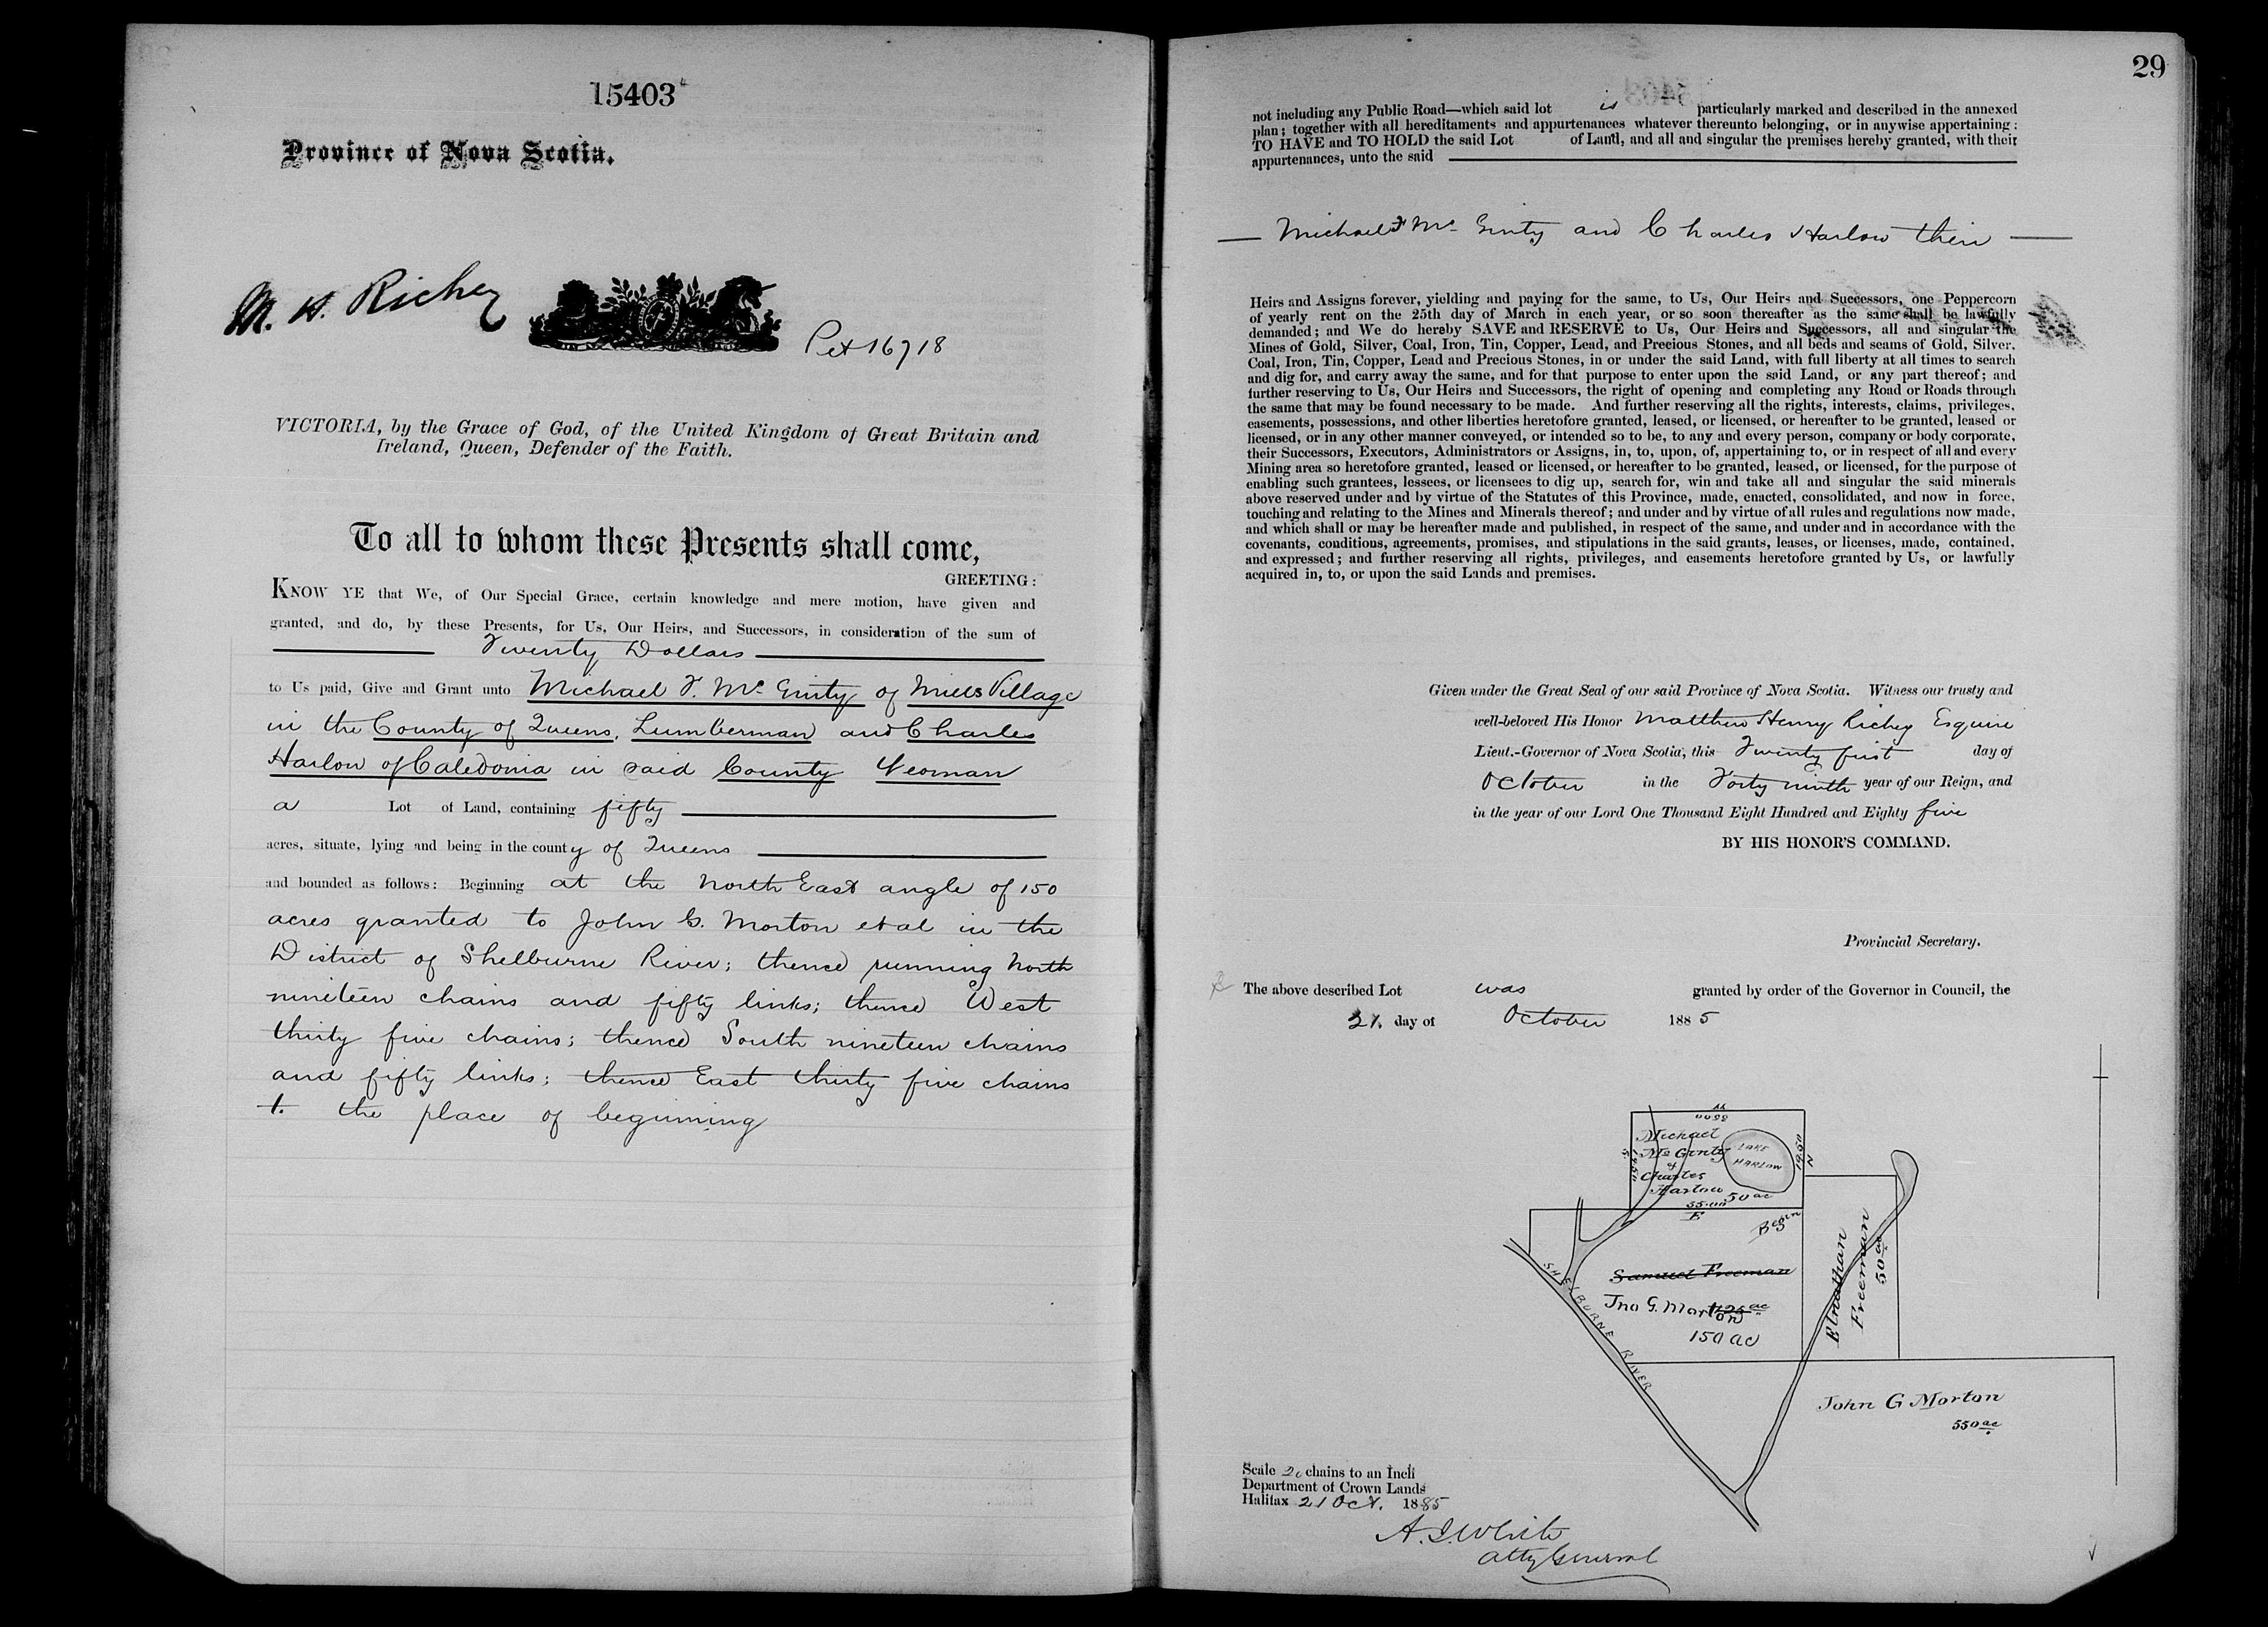 15403
Province of Nova Scotia.
M. H. Richey
Pet 16718
VICTORIA, by the Grace of God, of the United Kingdom of Great Britain and
Ireland, Queen, Defender of the Faith.
To all to whom these Presents shall come,
GREETING:
KNOW YE that We, of Our Special Grace, certain knowledge and mere motion, have given and
granted, and do, by these Presents, for Us, Our Heirs, and Successors, in consideration of the sum of
Twenty Dollars
to Us paid, Give and Grant unto Michael F. Mc Ginty of Mills Village
in the County of Queens, Lumberman and Charles
Harlow of Caledonia in said County Yeoman
a Lot of Land, containing fifty
acres, situate, lying and being in the county of Queens
and bounded as follows: Beginning at the North East angle of 150
acres granted to John G. Morton et al in the
District of Shelburne River; thence running North
nineteen chains and fifty links; thence West
thirty five chains; thence South nineteen chains
and fifty links; thence East thirty five chains
t. the place of beginning
29
not including any Public Road—which said lot is particularly marked and described in the annexed
plan; together with all hereditaments and appurtenances whatever thereunto belonging, or in anywise appertaining:
TO HAVE and TO HOLD the said Lot of Land, and all and singular the premises hereby granted, with their
appurtenances, unto the said
Michael F Mc Ginty and Charles Harlow their
Heirs and Assigns forever, yielding and paying for the same, to Us, Our Heirs and Successors, one Peppercorn
of yearly rent on the 25th day of March in each year, or so soon thereafter as the same shall be lawfully
demanded; and We do hereby SAVE and RESERVE to Us, Our Heirs and Successors, all and singular the
Mines of Gold, Silver, Coal, Iron, Tin, Copper, Lead, and Precious Stones, and all beds and seams of Gold, Silver,
Coal, Iron, Tin, Copper, Lead and Precious Stones, in or under the said Land, with full liberty at all times to search
and dig for, and carry away the same, and for that purpose to enter upon the said Land, or any part thereof; and
further reserving to Us, Our Heirs and Successors, the right of opening and completing any Road or Roads through
the same that may be found necessary to be made. And further reserving all the rights, interests, claims, privileges,
easements, possessions, and other liberties heretofore granted, leased, or licensed, or hereafter to be granted, leased or
licensed, or in any other manner conveyed, or intended so to be, to any and every person, company or body corporate,
their Successors, Executors, Administrators or Assigns, in, to, upon, of, appertaining to, or in respect of all and every
Mining area so heretofore granted, leased or licensed, or hereafter to be granted, leased, or licensed, for the purpose of
enabling such grantees, lessees, or licensees to dig up, search for, win and take all and singular the said minerals
above reserved under and by virtue of the Statutes of this Province, made, enacted, consolidated, and now in force,
touching and relating to the Mines and Minerals thereof; and under and by virtue of all rules and regulations now made,
and which shall or may be hereafter made and published, in respect of the same, and under and in accordance with the
covenants, conditions, agreements, promises, and stipulations in the said grants, leases, or licenses, made, contained,
and expressed; and further reserving all rights, privileges, and easements heretofore granted by Us, or lawfully
acquired in, to, or upon the said Lands and premises.
Given under the Great Seal of our said Province of Nova Scotia. Witness our trusty and
well-beloved His Honor Matthew Henry Richey Esquire
Lieut.-Governor of Nova Scotia, this Twenty first day of
October in the Forty ninth year of our Reign, and
in the year of our Lord One Thousand Eight Hundred and Eighty five
BY HIS HONOR'S COMMAND.
Provincial Secretary.
The above described Lot was granted by order of the Governor in Council, the
21. day of October 1885
W
35.00
Michael
Mc Ginty
&
Charles
Harlow 50 ac
LAKE
HARLOW
19.50
N
S.
19.50
35.00
E
Begin
Samuel Freeman
Jno G. Morton
125 ac
150 ac
Elnathan
Freeman
50 ac
SHELBURNE RIVER
John G Morton
550 ac
Scale 20 chains to an Inch
Department of Crown Lands
Halifax 21 Oct. 1885
A. J. White
Atty General